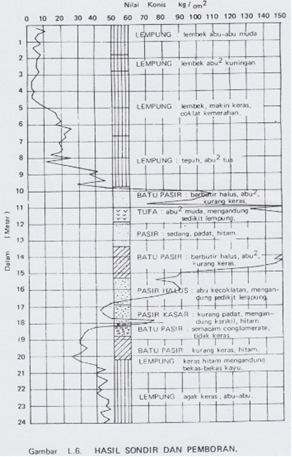 Nilai Konis kg/cm²
0 10 20 30 40 50 60 70 80 90 100 110 120 130 140 150
LEMPUNG : lembek abu-abu muda
1
2
LEMPUNG : lembek abu² kuningan
3
4
LEMPUNG : lembek, makin keras,
coklat kemerahan.
5
6
7
8
LEMPUNG : teguh, abu² tua
9
10
BATU PASIR : berbutir halus, abu²,
kurang keras.
11
TUFA : abu² muda, mengandung
sedikit lempung.
12
PASIR : sedang, padat, hitam.
13
14
BATU PASIR : berbutir halus, abu²,
kurang keras.
15
16
PASIR HALUS : abu kecoklatan, mengan-
dung sedikit lempung.
17
PASIR KASAR : kurang padat, mengan-
dung kerikil, hitam.
18
BATU PASIR : semacam conglomerate,
tidak keras.
19
20
BATU PASIR : kurang keras, hitam.
21
LEMPUNG : keras hitam mengandung
bekas-bekas kayu.
22
23
LEMPUNG : agak keras, abu-abu.
24
Dalam (Meter)
Gambar L.6. HASIL SONDIR DAN PEMBORAN.